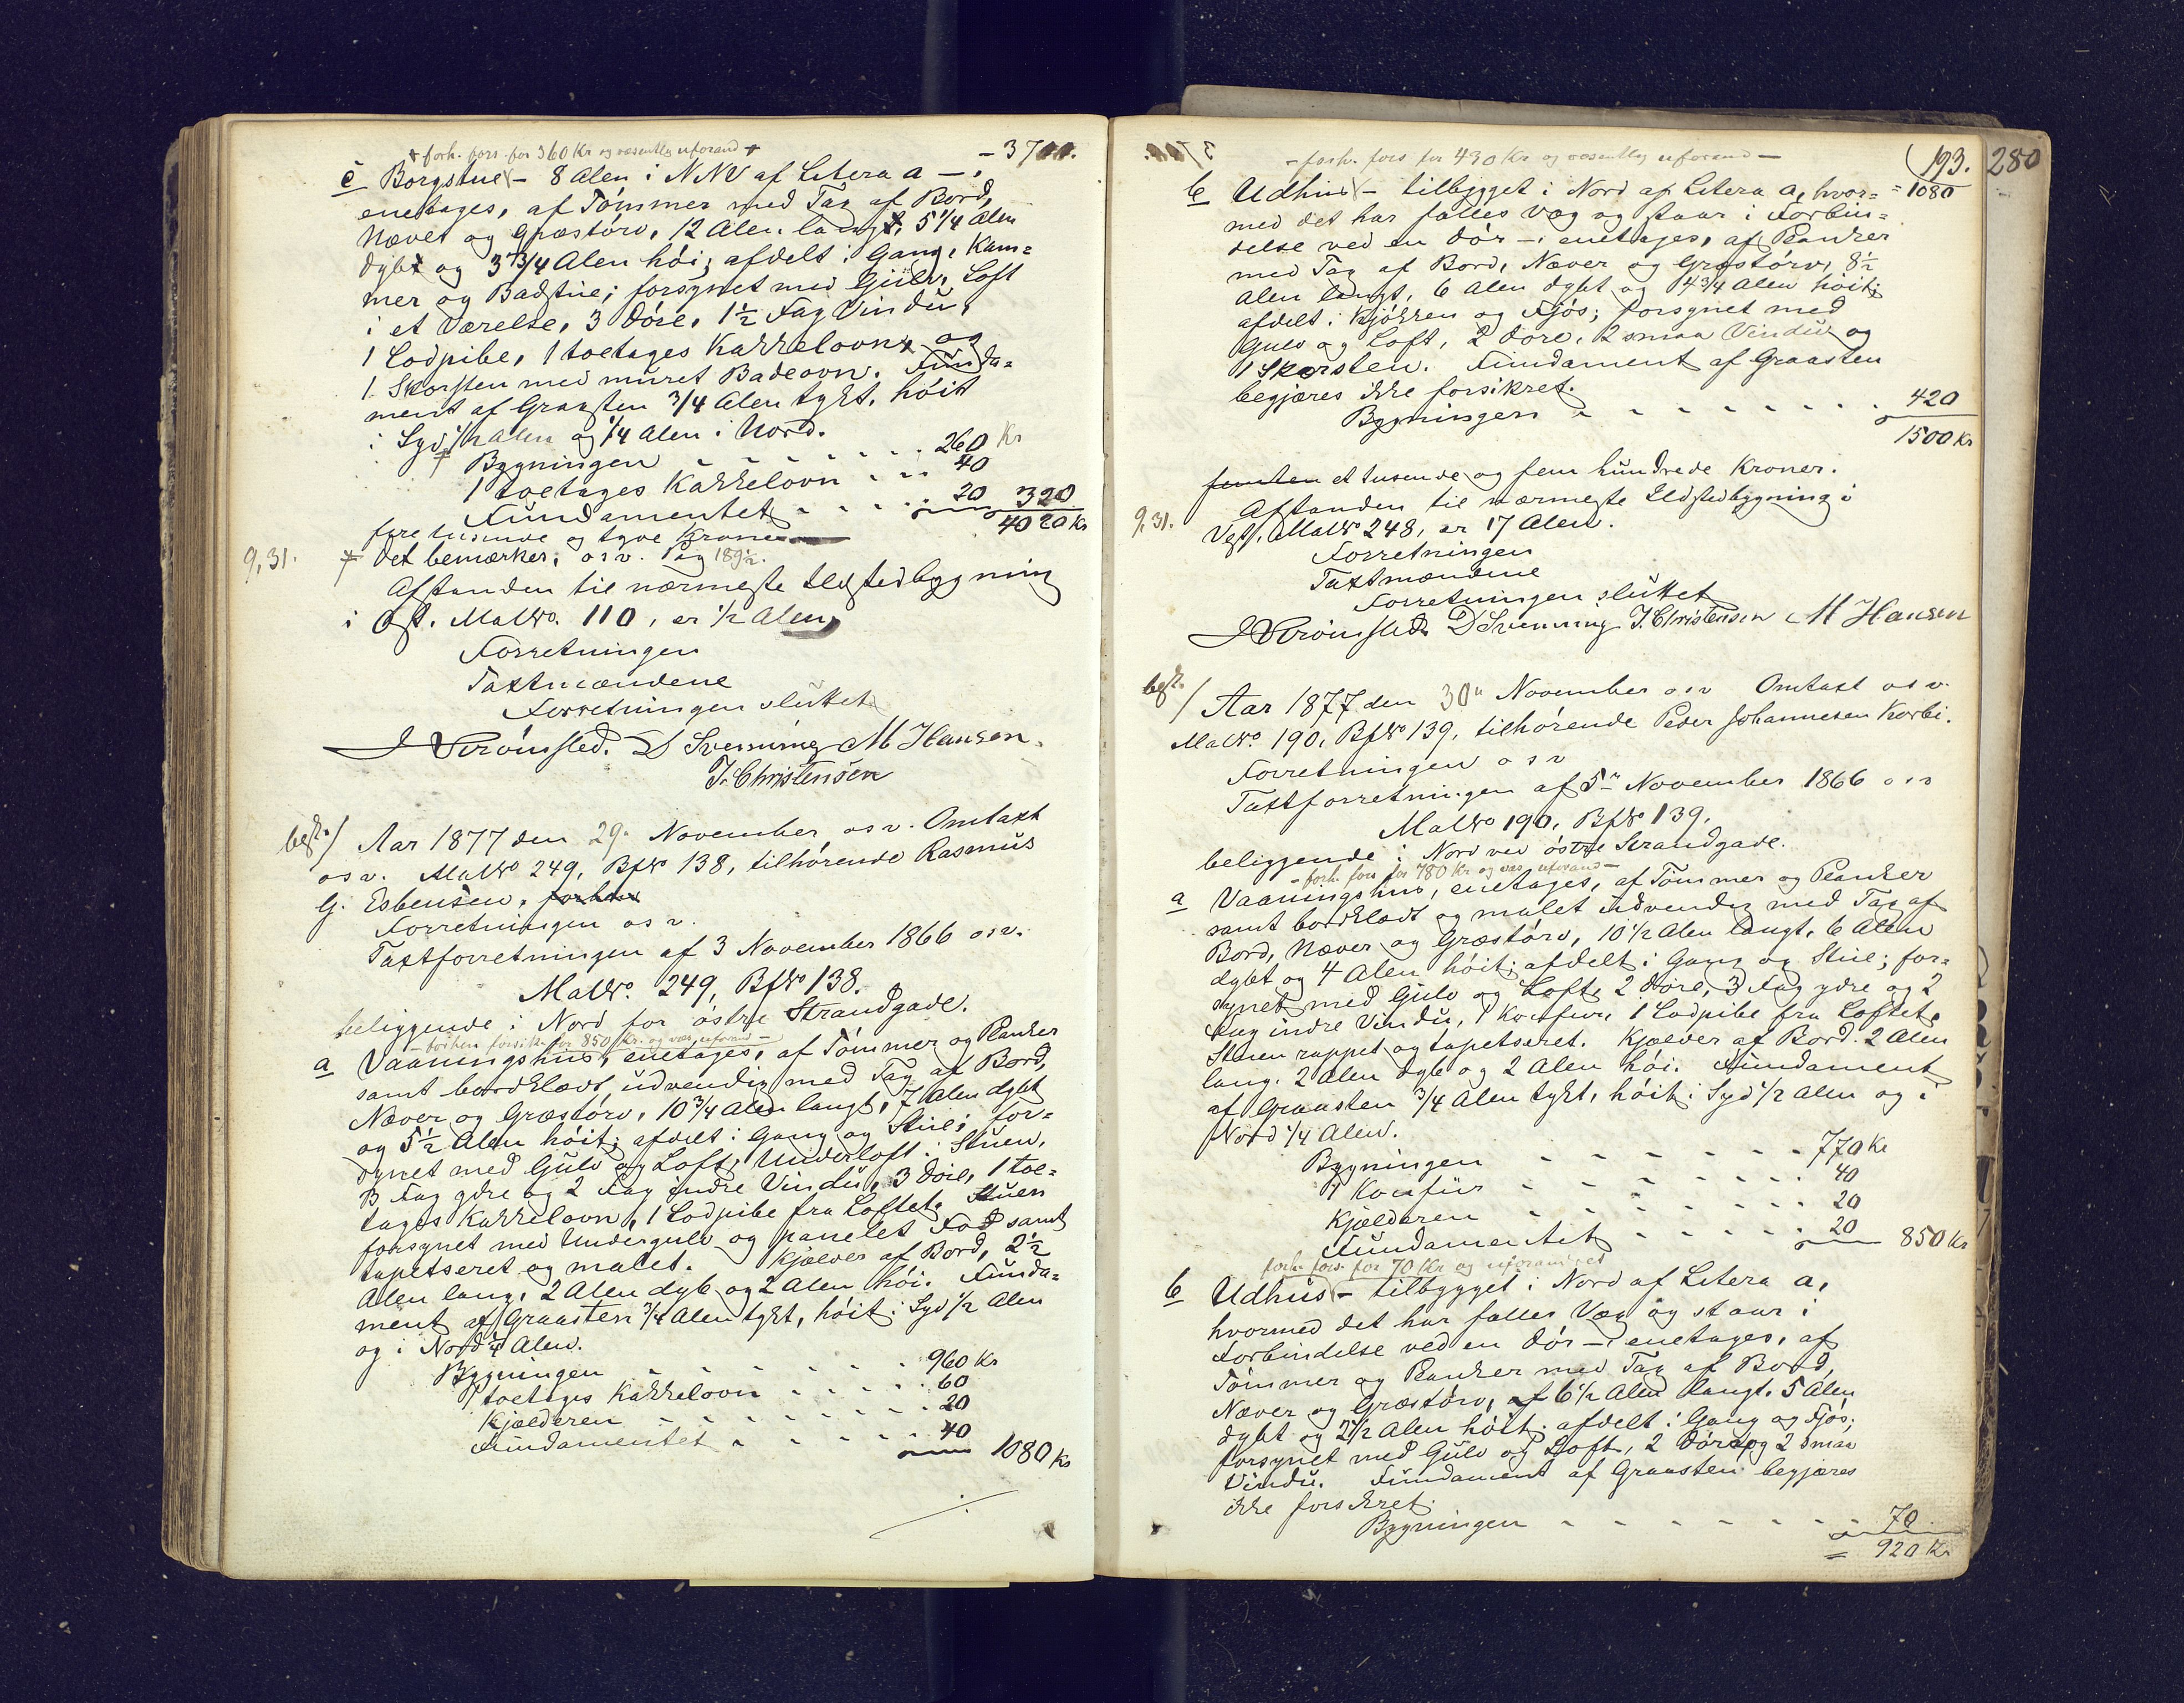 + forh. fors. for 360 Kr og væsentlig uforand +
- 3700.
c Borgstue - 8 Alen i NNV af Litera a -,
enetages, af Tømmer med Tag af Bord,
Næver og Græstørv, 12 Alen lang, 5 1/4 Alen
dyb og 3 3/4 Alen høi; afdelt i Gang, Kam=
mer og Badstue; forsynet med Gulv, Loft
i et Værelse, 3 Døre, 1 1/2 Fag Vindu,
1 Lodpibe, 1 toetages Kakkelovn og
1 Skorsten med muret Badeovn. Funda=
ment af Graasten 3/4 Alen tykt, høit
i Syd 1/2 Alen og 1/4 Alen i Nord.
+ Bygningen - - - - - - 260 Kr
1 toetages Kakkelovn - - - 40
Fundamentet - - - - 20 320
4020 Kr
fire tusende og tyve Kroner
9,31. + Det bemærkes, osv. Pag 189 1/2.
Afstanden til nærmeste Ildstedbygning
i Øst. MatNo. 110, er 1/2 Alen
Forretningen
Taxtmændene
Forretningen sluttet
J Strømsted. D Svenning M Hansen.
J. Christensen
besk./ Aar 1877 den 29. November osv. Omtaxt
osv. MatNo 249, BfNo 138, tilhørende Rasmus
G. Esbensen, forhen
Forretningen osv.
Taxtforretningen af 3 November 1866 osv.
MatNo. 249, BfNo 138.
beliggende i Nord for østre Strandgade.
- forhen forsik. for 850 Kr. og væs. uforand -
a Vaaningshus, enetages, af Tømmer og Planker
samt bordklædt udvendig med Tag af Bord,
Næver og Græstørv, 10 3/4 Alen langt, 7 Alen dybt
og 5 1/2 Alen høit; afdelt i Gang og Stue; for=
synet med Gulv og Loft, Underloft i Stuen,
3 Fag ydre og 2 Fag indre Vindu, 3 Døre, 1 toe=
tages Kakkelovn, 1 Lodpibe fra Loftet. Stuen
forsynet med Undergulv og panelet Fod samt
tapetseret og malet. Kjælder af Bord, 2 1/2
Alen lang, 2 Alen dyb og 2 Alen høi. Funda=
ment af Graasten 3/4 Alen tykt, høit i Syd 1/2 Alen
og i Nord 1/4 Alen.
Bygningen - - - - - - 960 Kr
1 toetages Kakkelovn - - - - 60
Kjælderen - - - - - - - 20
Fundamentet - - - - - 40
1080 Kr
193. 280
- forh. fors for 430 Kr og væsentlig uforand -
b Udhus - tilbygget i Nord af Litera a, hvor= = 1080
med det har fælles Væg og staar i Forbin=
delse ved en Dør -, enetages, af Planker
med Tag af Bord, Næver og Græstørv, 8 1/2
Alen langt, 6 Alen dybt og 4 3/4 Alen høit;
afdelt i Kjøkken og Fjøs; forsynet med
Gulv og Loft, 2 Døre, 2 smaa Vindu og
1 Skorsten. Fundament af Graasten
begjæres ikke forsikret.
Bygningen - - - - - - - - 420
1500 Kr
femten et tusende og fem hundrede Kroner.
9,31. Afstanden til nærmeste Ildstedbygning i
Vest. MatNo 248, er 17 Alen.
Forretningen
Taxtmændene
Forretningen sluttet
J Strømsted D Svenning J. Christensen M Hansen
besk./ Aar 1877 den 30te November osv Omtaxt osv.
MatNo. 190, BfNo 139, tilhørende Peder Johannesen Korbi.
Forretningen osv
Taxtforretningen af 5te November 1866 osv
MatNo 190, BfNo 139,
beliggende i Nord ved østre Strandgade.
- forh. fors for 780 Kr og væs uforand -
a Vaaningshus, enetages, af Tømmer og Planker
samt bordklædt og malet udvendig med Tag af
Bord, Næver og Græstørv, 10 1/2 Alen langt, 6 Alen
dybt og 4 Alen høit; afdelt i Gang og Stue; for=
synet med Gulv og Loft, 2 Døre, 3 Fag ydre og 2
Fag indre Vindu, 1 Komfur, 1 Lodpibe fra Loftet.
Stuen rappet og tapetseret. Kjælder af Bord 2 Alen
lang, 2 Alen dyb og 2 Alen høi. Fundament
af Graasten 3/4 Alen tykt, høit i Syd 1/2 Alen og i
Nord 1/4 Alen.
Bygningen - - - - - - 770 Kr
1 Komfur - - - - - - - 40
Kjælderen - - - - - - - 20
Fundamentet - - - - - 20 850 Kr
forh. fors. for 70 Kr og uforandret
b Udhus - tilbygget i Nord af Litera a,
hvormed det har fælles Væg og staar i
Forbindelse ved en Dør -, enetages, af
Tømmer og Planker med Tag af Bord,
Næver og Græstørv, af 6 1/2 Alen langt, 5 Alen
dybt og 2 1/2 Alen høit; afdelt i Gang og Fjøs;
forsynet med Gulv og Loft, 2 Døre og 2 smaa
Vindu. Fundament af Graasten begjæres
ikke forsikret.
Bygningen - - - - - - - 70
= 920 Kr